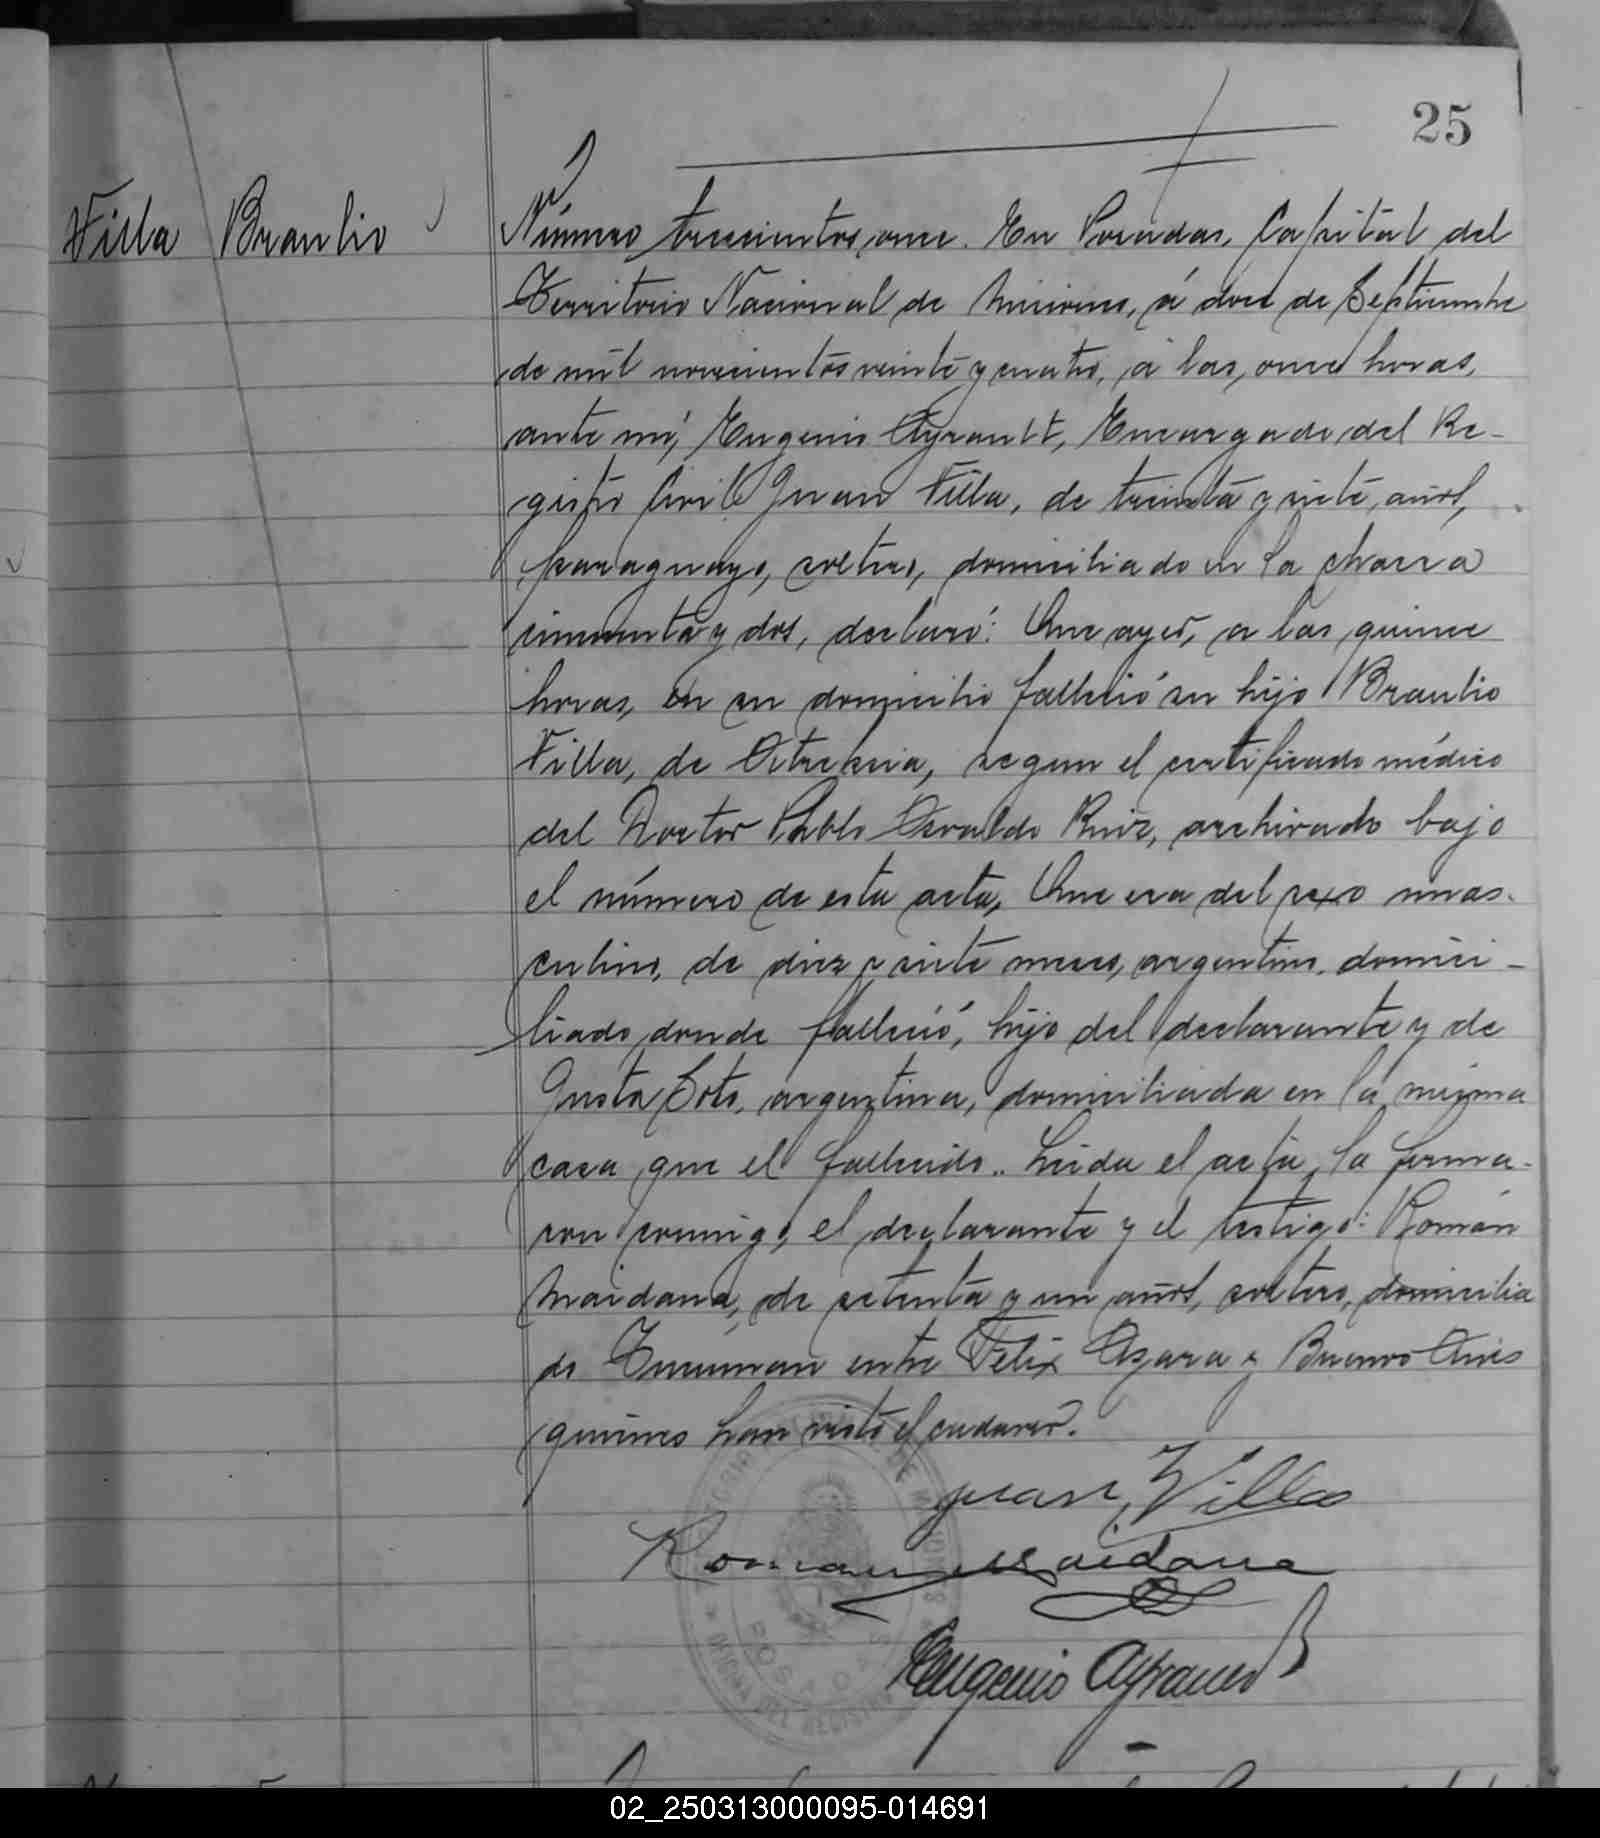 25
Villa Braulio
Número trescientos once. En Posadas, Capital del
Territorio Nacional de Misiones, á doce de Septiembre
de mil novecientos veinte y cuatro, á las, once horas,
ante mí, Eugenio Ayrault, Encargado del Re-
gistro Civil Juan Villa, de treinta y siete, años,
paraguayo, soltero, domiciliado en la chacra
cincuenta y dos, declaró: Que ayer, a las quince
horas, en su domicilio falleció su hijo Braulio
Villa, de Atrepsia, segun el certificado médico
del Doctor Pablo Osvaldo Ruiz, archivado bajo
el número de esta acta, Que era del sexo mas-
culino, de diez y siete meses, argentino, domici-
liado donde falleció, hijo del declarante y de
Justa Soto, argentina, domiciliada en la misma
casa que el fallecido.. Leida el acta, la firma-
ron conmigo, el declarante y el testigo: Román
Maidana, de setenta y un años, soltero, domicilia
do Tucuman entre Felix Azara y Buenos Aires
quienes han visto el cadaver.
Juan Villa
Roman Maidana
Eugenio Ayrault
POSADAS
02_250313000095-014691